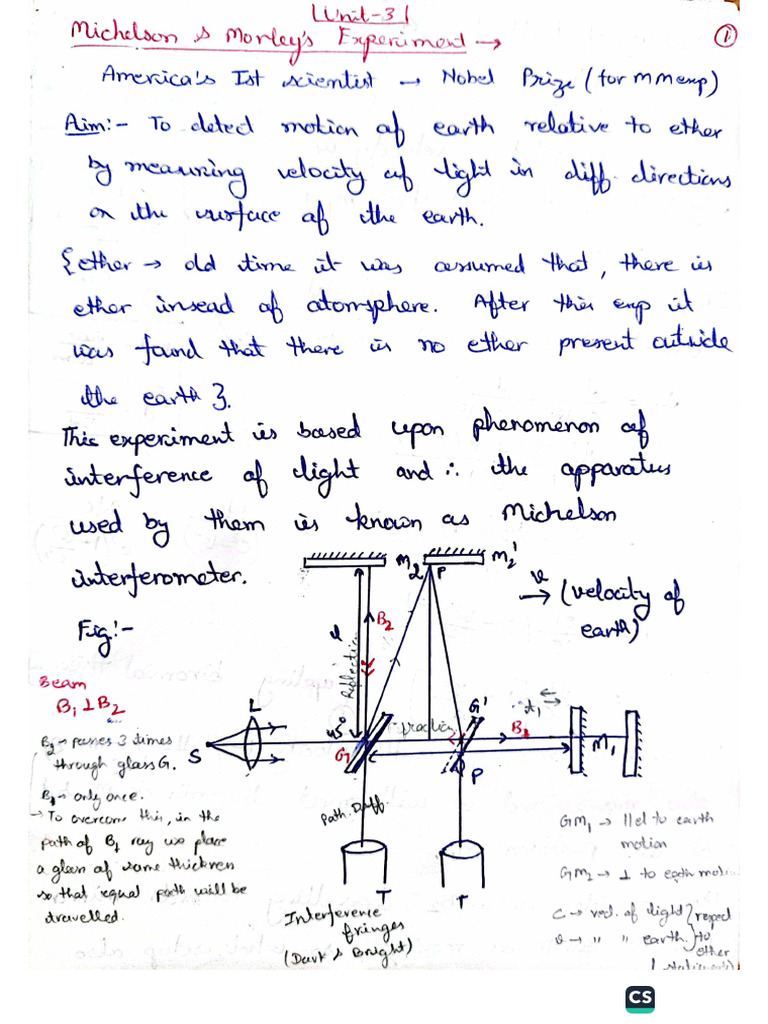 Unit-3
Michelson & Morley's Experiment →
1
America's Ist scientist → Nobel Prize (for MM exp)
Aim:- To detect motion of earth relative to ether
by measuring velocity of light in diff. directions
on the surface of the earth.
{ether → old time it was assumed that, there is
ether insead of atomsphere. After this exp it
was found that there is no ether present outside
the earth}.
This experiment is based upon phenomenon of
interference of light and ∴ the apparatus
used by them is known as Michelson
interferometer.
M2 P M2'
v → (velocity of
earth)
Fig:-
B2
l
Reflection
Beam
B1 ⊥ B2
L
45°
G'
B1
S
G
M1
P
B2 → passes 3 times
through glass G.
B1 → only once.
→ To overcome this, in the
path of B1 ray we place
a glass of same thicknen
so that equal path will be
travelled.
Path. Diff.
T
T
Interference
fringes
(Dark & Bright)
GM1 → llel to earth
motion
GM2 → ⊥ to earth motion
c → vel. of light
v → " " earth.
to
ether
CS